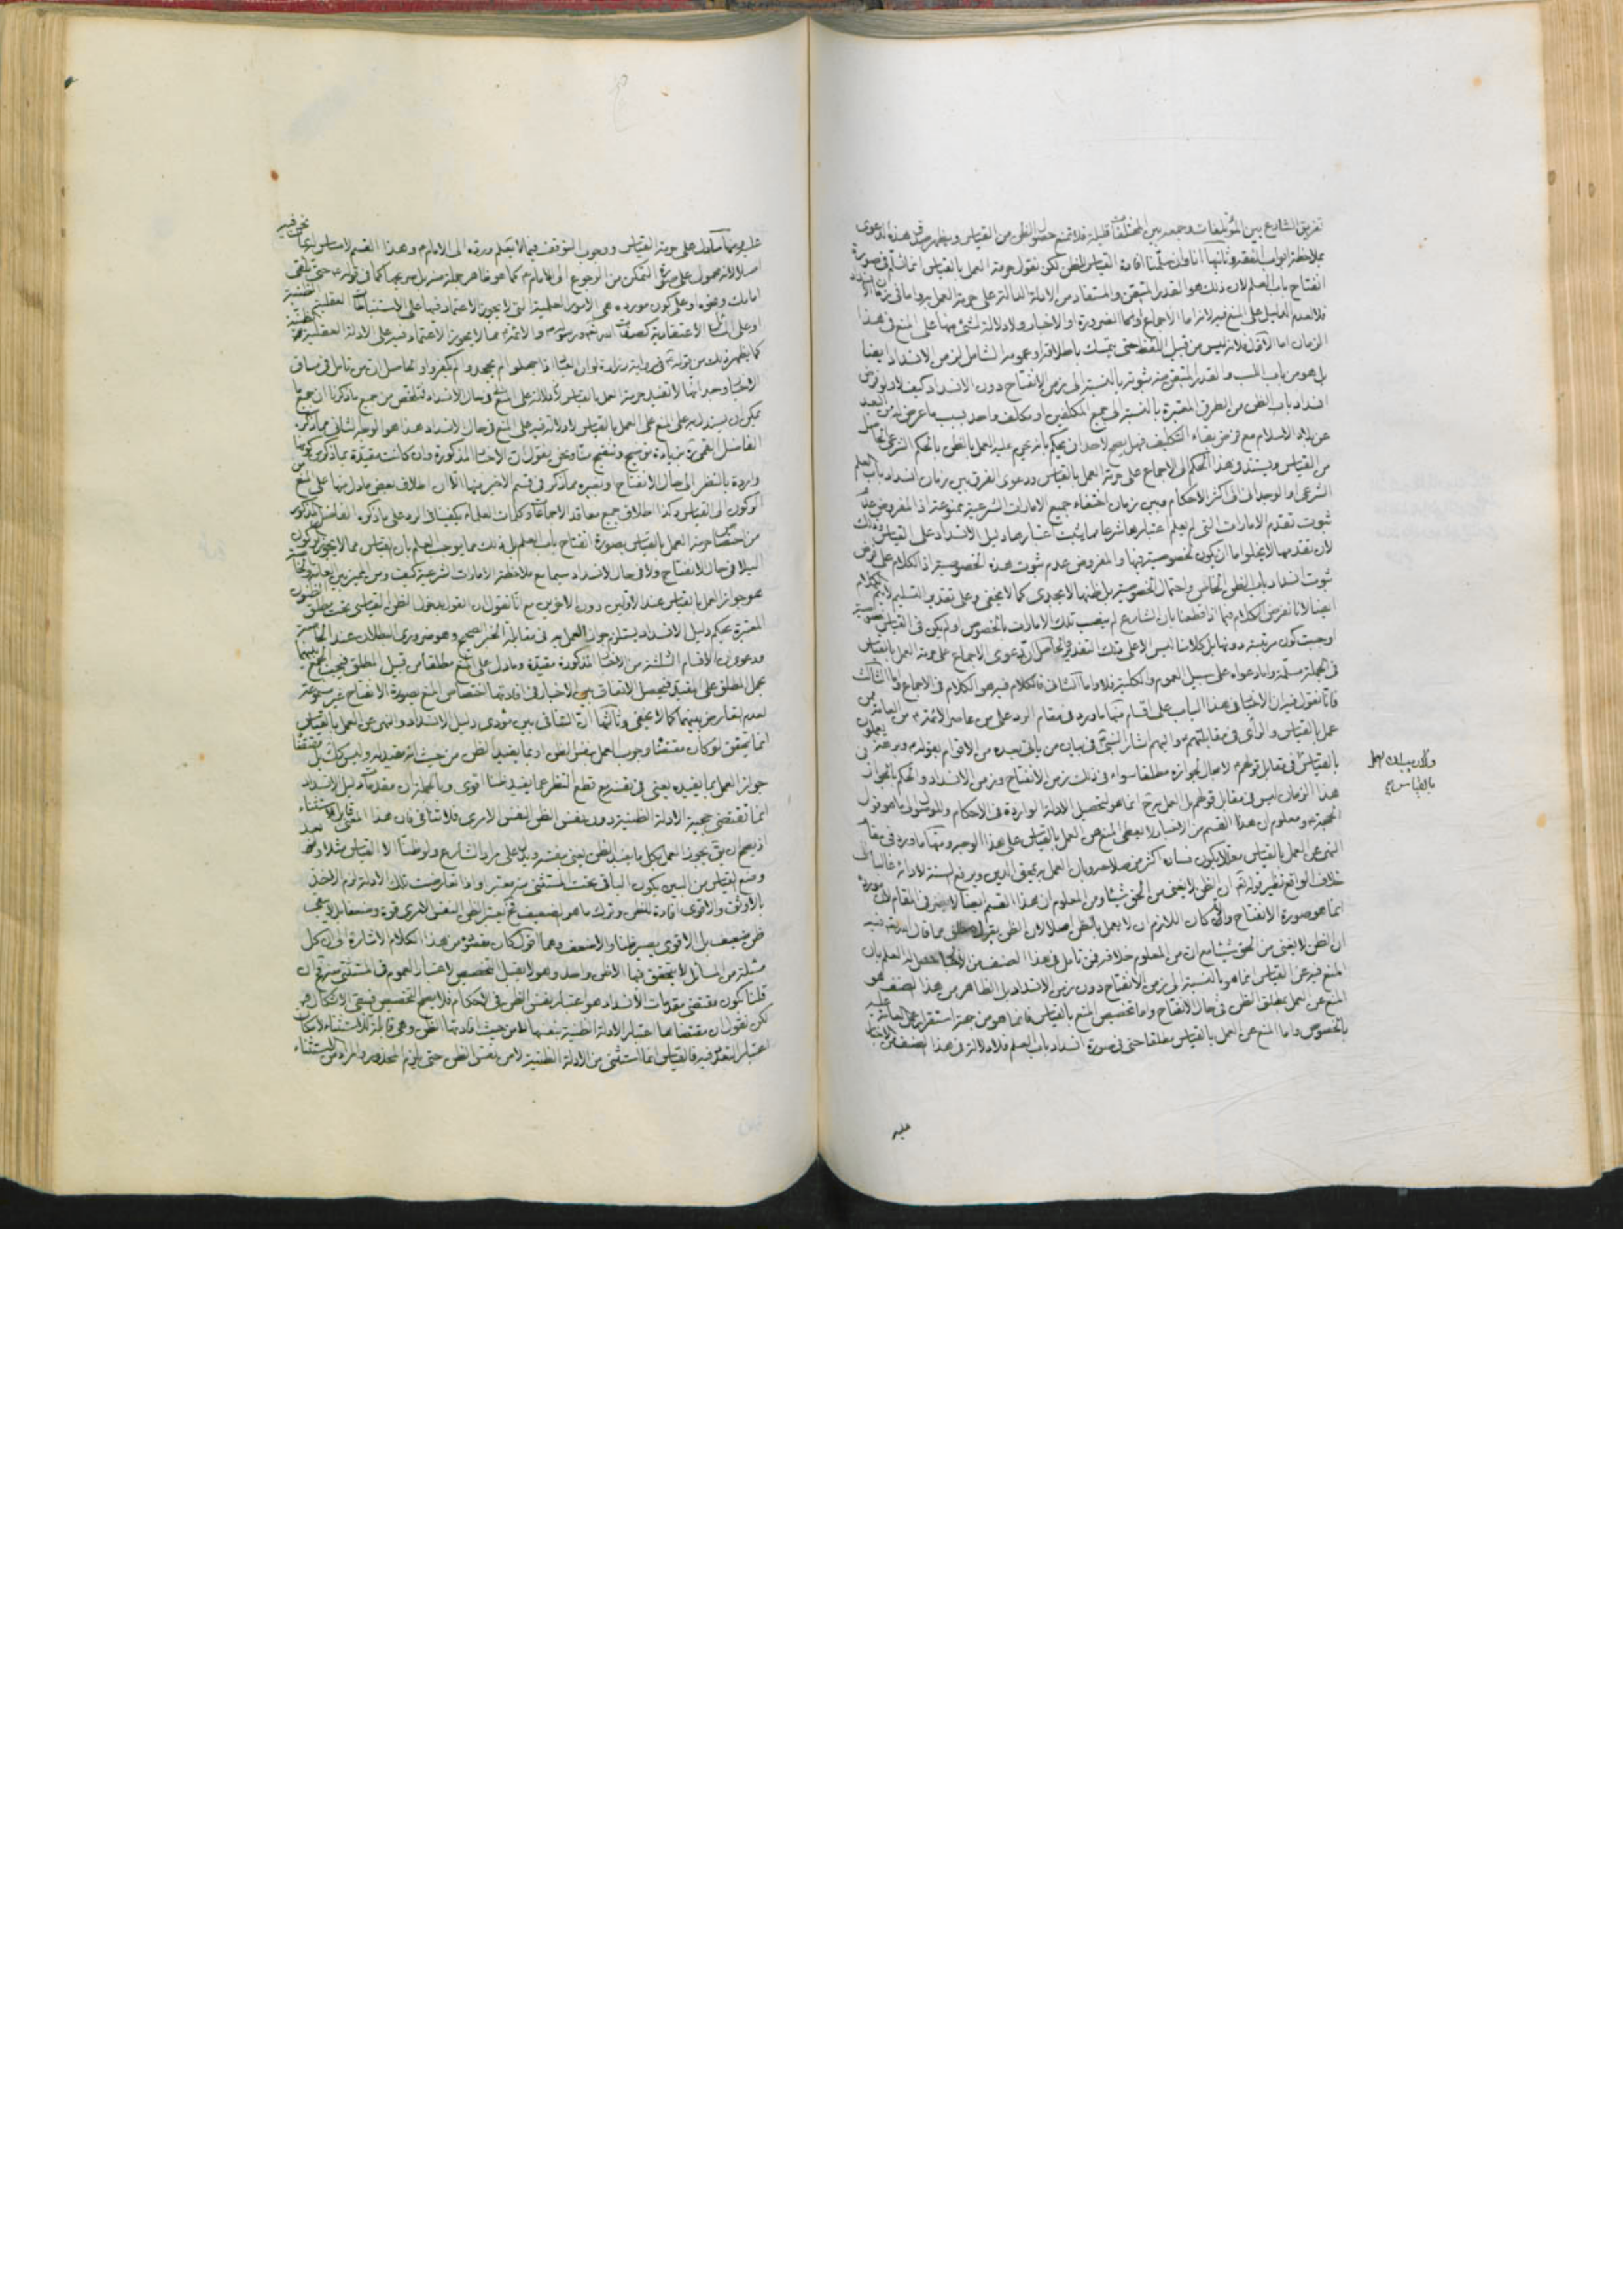 تفريق الشارع بين المؤتلفات وجمعه بين المختلفات قليلة فلا تمنع حصول الظن من القياس ويظهر صدق هذه الدعوى
بملاحظة ابواب الفقه وثانيها انا وان سلمنا افادة القياس للظن لكن نقول حرمة العمل بالقياس انما تسلم في صورة
انفتاح باب العلم لان ذلك هو القدر المتيقن والمستفاد من الادلة الدالة على حرمة العمل به واما في زمان الانسداد
فلا لعدم الدليل على المنع فيه لانه اما الاجماع او الضرورة او الاخبار ولا دلالة لشيء منها على المنع في هذا
الزمان اما الاول فلانه ليس من قبيل اللفظ حتى يتمسك باطلاقه او عمومه الشامل لزمن الانسداد ايضا
بل هو من باب اللب والقدر المتيقن منه ثبوته بالنسبة الى زمن الانفتاح دون الانسداد كيف ولو فرض
انسداد باب الظن من الطرق المعتبرة بالنسبة الى جميع المكلفين او مكلف واحد بسبب ما عرض له من البعد
عن بلاد الاسلام مع فرض بقاء التكليف فهل يصح لاحد ان يحكم بانه يحرم عليه العمل بالظن بالحكم الشرعي الحاصل
من القياس ويستند في هذا الحكم الى الاجماع على حرمة العمل بالقياس ودعوى الفرق بين زمان انسداد باب العلم
الشرعي او الوجداني في اكثر الاحكام وبين زمان اختفاء جميع الامارات الشرعية ممنوعة اذ المفروض عدم
ثبوت تقدم الامارات التي لم يعلم اعتبارها شرعا مما يثبت اعتبارها دليل الانسداد على القياس وذلك
لان تقدمها لا يخلو اما ان يكون لخصوصية فيها والمفروض عدم ثبوت هذه الخصوصية اذ الكلام على فرض
ثبوت انسداد باب الظن الخاص واحتمال الخصوصية بل ظنها لا يجدي كما لا يخفى وعلى تقدير التسليم لا يتم الكلام
ايضا لانا نفرض الكلام فيما اذا قطعنا بان الشارع لم ينصب تلك الامارات بالخصوص ولم يكن في القياس خصوصية
اوجبت كون مرتبته دونها بل كلامنا ليس الا على ذلك التقدير فالحاصل ان دعوى الاجماع على حرمة العمل بالقياس
في الجملة مسلمة واما دعواه على سبيل العموم والكلية فلا واما الثاني فالكلام فيه هو الكلام في الاجماع واما الثالث
فانا نقول فيه ان الاخبار في هذا الباب على اقسام منها ما ورد في مقام الرد على من عاصر الائمة من العامة ممن
عمل بالقياس والرأي في مقابلتهم واليهم اشار النبي في بيان من ياتي بعده من الاقوام بقوله وبرهة يعملون
بالقياس في مقابل قولهم لا مجال لجوازه مطلقا سواء في ذلك زمن الانفتاح وزمن الانسداد والحكم بالجواز في
هذا الزمان ليس في مقابل قولهم بل العمل به ح انما هو لتحصيل الادلة الواردة في الاحكام والوصول الى ما هو قول
الحجة ومعلوم ان هذا القسم من الاخبار لا يعطي المنع عن العمل بالقياس على هذا الوجه ومنها ما ورد في مقام
النهي عن العمل بالقياس معللا بكون فساده اكثر من صلاحه وبان العمل به يمحق الدين ويرفع السنة لادائه غالبا الى
خلاف الواقع نظير قوله تعالى ان الظن لا يغني من الحق شيئا ومن المعلوم ان هذا القسم ايضا لا يضر في المقام لان مورده
انما هو صورة الانفتاح والا كان اللازم ان لا يعمل بالظن اصلا لان الظن بقول مطلق مما قال الله تعالى فيه
ان الظن لا يغني من الحق شيئا مع ان من المعلوم خلافه فمن تامل في هذا الصنف من الاخبار حصل له العلم بان
المنع فيه عن القياس انما هو بالنسبة الى زمن الانفتاح دون زمن الانسداد بل الظاهر من هذا الصنف هو
المنع عن العمل بمطلق الظن في حال الانفتاح واما تخصيص المنع بالقياس فانما هو من جهة استقرار عمل العامة عليه
بالخصوص واما المنع عن العمل بالقياس مطلقا حتى في صورة انسداد باب العلم فلا دلالة في هذا الصنف من الاخبار
عليه
بالقياس
عليه ومنها ما دل على حرمة القياس ووجوب التوقف فيما لا يعلم ورده الى الامام وهذا القسم لا مساس له بما نحن فيه
اصلا لانه محمول على صورة التمكن من الرجوع الى الامام كما هو ظاهر جملة منه بل صريحها كما في قوله حتى تلقى
امامك ونحوه او على كون مورده هي الامور العلمية التي لا يجوز الاعتماد فيها على الاستنباطات العقلية الظنية
او على المسائل الاعتقادية كصفات الله ورسوله والائمة مما لا يجوز الاعتماد فيه على الادلة العقلية الظنية
كما يظهر ذلك من قوله في رواية زرارة لو ان العباد اذا جهلوا لم يجحدوا لم يكفروا والحاصل ان من تامل في مساق
الاخبار وجد انها لا تفيد حرمة العمل بالقياس ولا دلالة على المنع في حال الانسداد فتلخص من جميع ما ذكرنا ان جميع ما
يمكن ان يستدل به على المنع على العمل بالقياس لا دلالة فيه على المنع في حال الانسداد هذا هو الوجه الثاني مما ذكره
الفاضل القمي بزيادة توضيح وتنقيح منا ونحن نقول ان الاخبار المذكورة وان كانت مقيدة بما ذكر من كونها
واردة بالنظر الى حال الانفتاح وبغيره مما ذكر في قسم الاخير منها الا ان اطلاق بعض ما دل منها على المنع من
الركون الى القياس وكذا اطلاق جميع معاقد الاجماعات وكلمات العلماء يكفينا في الرد على ما ذكره الفاضل المذكور
من اختصاص حرمة العمل بالقياس بصورة انفتاح باب العلم بل ذلك مما يوجب العلم بان القياس مما لا يجوز الركون
اليه لا في حال الانفتاح ولا في حال الانسداد سيما مع ملاحظة الامارات الشرعية كيف ومن المميز بين العامة والخاصة
هو جواز العمل بالقياس عند الاولين دون الاخرين مع انا نقول ان القول بدخول الظن القياسي تحت مطلق الظنون
المعتبرة بحكم دليل الانسداد يستلزم جواز العمل به في مقابلة الخبر الصحيح وهو ضروري البطلان عند الخاصة
ودعوى ان الاقسام الثلثة من الاخبار المذكورة مقيدة وما دل على المنع مطلقا من قبيل المطلق فيجب الجمع بينهما
بحمل المطلق على المقيد فيحصل الاتفاق بين الاخبار في افادتها اختصاص المنع بصورة الانفتاح غير مسموعة
لعدم التعارض بينهما كما لا يخفى وثالثها ان التنافي بين مؤدى دليل الانسداد والنهي عن العمل بالقياس
انما يتحقق لو كان مقتضاه وجوب العمل بنفس الظن او بما يفيد الظن من حيث انه مفيد له وليس كك بل مقتضاه
جواز العمل بما يفيده يعني في نفسه مع قطع النظر عما يفيد ظنا اقوى وبالجملة ان مقدمات دليل الانسداد
انما تقتضي حجية الادلة الظنية دون نفس الظن النفس الامري فلا تنافي فان هذا المعنى قابل للاستثناء
اذ يصح ان يق يجوز العمل بكل ما يفيد الظن يعني بنفسه ويدل على مراد الشارع ولو ظنا الا القياس مثلا وبعد
وضع القياس من البين يكون الباقي تحت المستثنى منه معتبرا واذا تعارضت تلك الادلة لزم الاخذ
بالاوثق والاقوى افادة للظن وترك ما هو الضعيف فح يعتبر الظن النفس الامري قوة وضعفا بل لا يبقى
ظن ضعيف بل الاقوى يصير ظنا والاضعف وهما اقول كان مقصوده من هذا الكلام الاشارة الى ان كل
مسئلة من المسائل لا يتحقق فيها الا ظن واحد وهو لا يقبل التخصيص لاعتبار العموم في المستثنى منه فح ان
قلنا كون مقتضى مقدمات الانسداد هو اعتبار نفس الظن في الاحكام فلا يصح التخصيص فيبقى الاشكال هو
لكن نقول ان مقتضاها اعتبار الادلة الظنية بنفسها لا من حيث افادتها الظن وهي قابلة للاستثناء لامكان
اعتبار التعدد فيه فالقياس انما استثنى من الادلة الظنية لا من نفس الظن حتى يلزم المحذور والمراد من الاستثناء